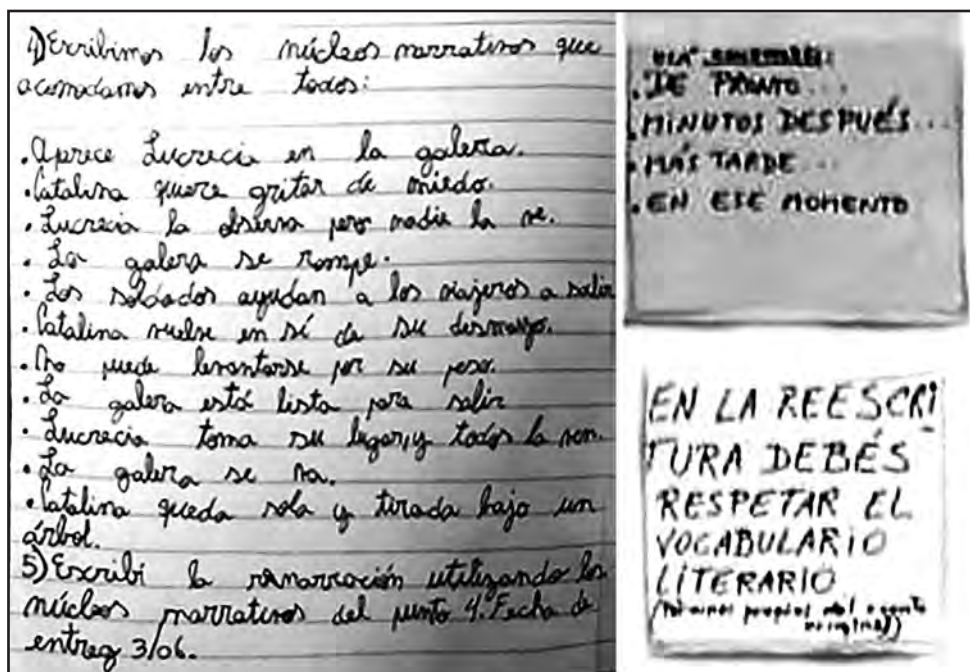 4) Escribimos los núcleos narrativos que
acomodamos entre todos:
. Aprece Lucrecia en la galera.
. Catalina quiere gritar de miedo.
. Lucrecia la observa pero nadie la ve.
. La galera se rompe.
. Los soldados ayudan a los viajeros a salir
. Catalina vuelve en sí de su desmayo.
. No puede levantarse por su peso.
. La galera está lista para salir
. Lucrecia toma su lugar, y todos la ven.
. La galera se va.
. Catalina queda sola y tirada bajo un
árbol.
5) Escribí la renarración utilizando los
núcleos narrativos del punto 4. Fecha de
entreg 3/06.
. DE PRONTO...
. MINUTOS DESPUÉS...
. MÁS TARDE...
. EN ESE MOMENTO
EN LA REESCRI
TURA DEBÉS
RESPETAR EL
VOCABULARIO
LITERARIO
(términos propios del cuento
original)